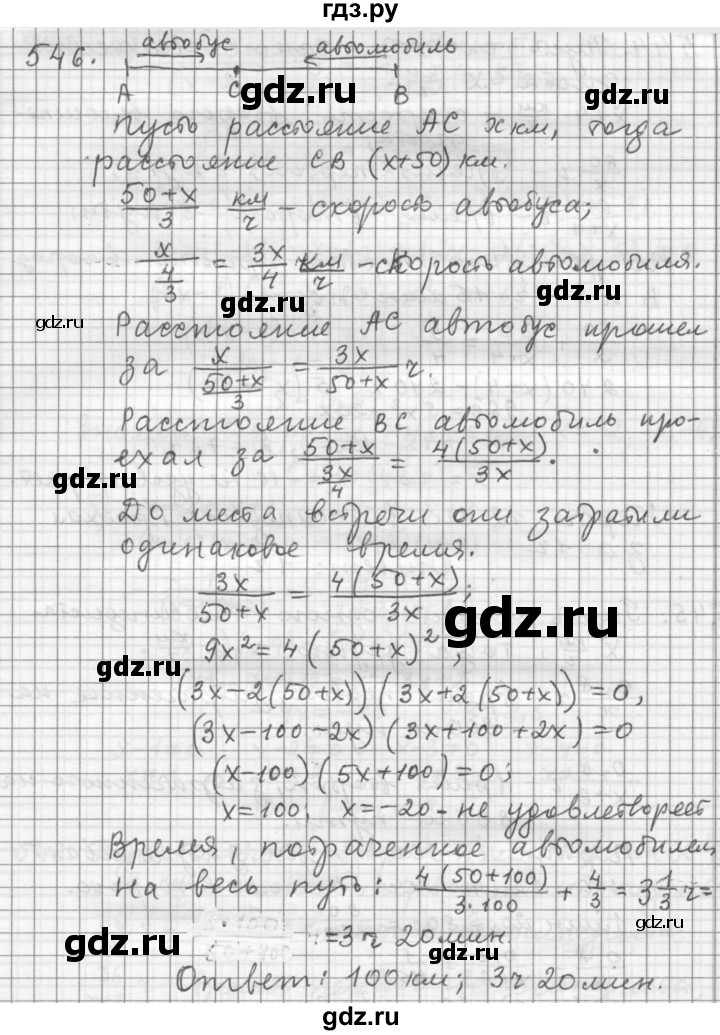 гдз.ру
546. автобус автомобиль
A C B
gdz.ru gdz.ru
Пусть расстояние AC x км, тогда
расстояние CB (x+50) км.
(50+x)/3 км/ч - скорость автобуса;
gdz.ru
x/(4/3) = 3x/4 км/ч - скорость автомобиля.
gdz.ru gdz.ru
gdz.ru
Расстояние AC автобус прошел
за x/((50+x)/3) = 3x/(50+x) ч.
Расстояние BC автомобиль про-
ехал за (50+x)/(3x/4) = 4(50+x)/3x.
gdz.ru gdz.ru
До места встречи они затратили
одинаковое время.
3x/(50+x) = 4(50+x)/3x;
gdz.ru
9x² = 4(50+x)²;
gdz.ru
(3x-2(50+x))(3x+2(50+x))=0,
(3x-100-2x)(3x+100+2x)=0
(x-100)(5x+100)=0;
x=100; x=-20 - не удовлетворяет
Время, потраченное автомобилем
на весь путь: 4(50+100)/3·100 + 4/3 = 3 1/3 ч =
= 3 ч 20 мин.
gdz.ru gdz.ru
Ответ: 100 км; 3 ч 20 мин.
gdz.ru